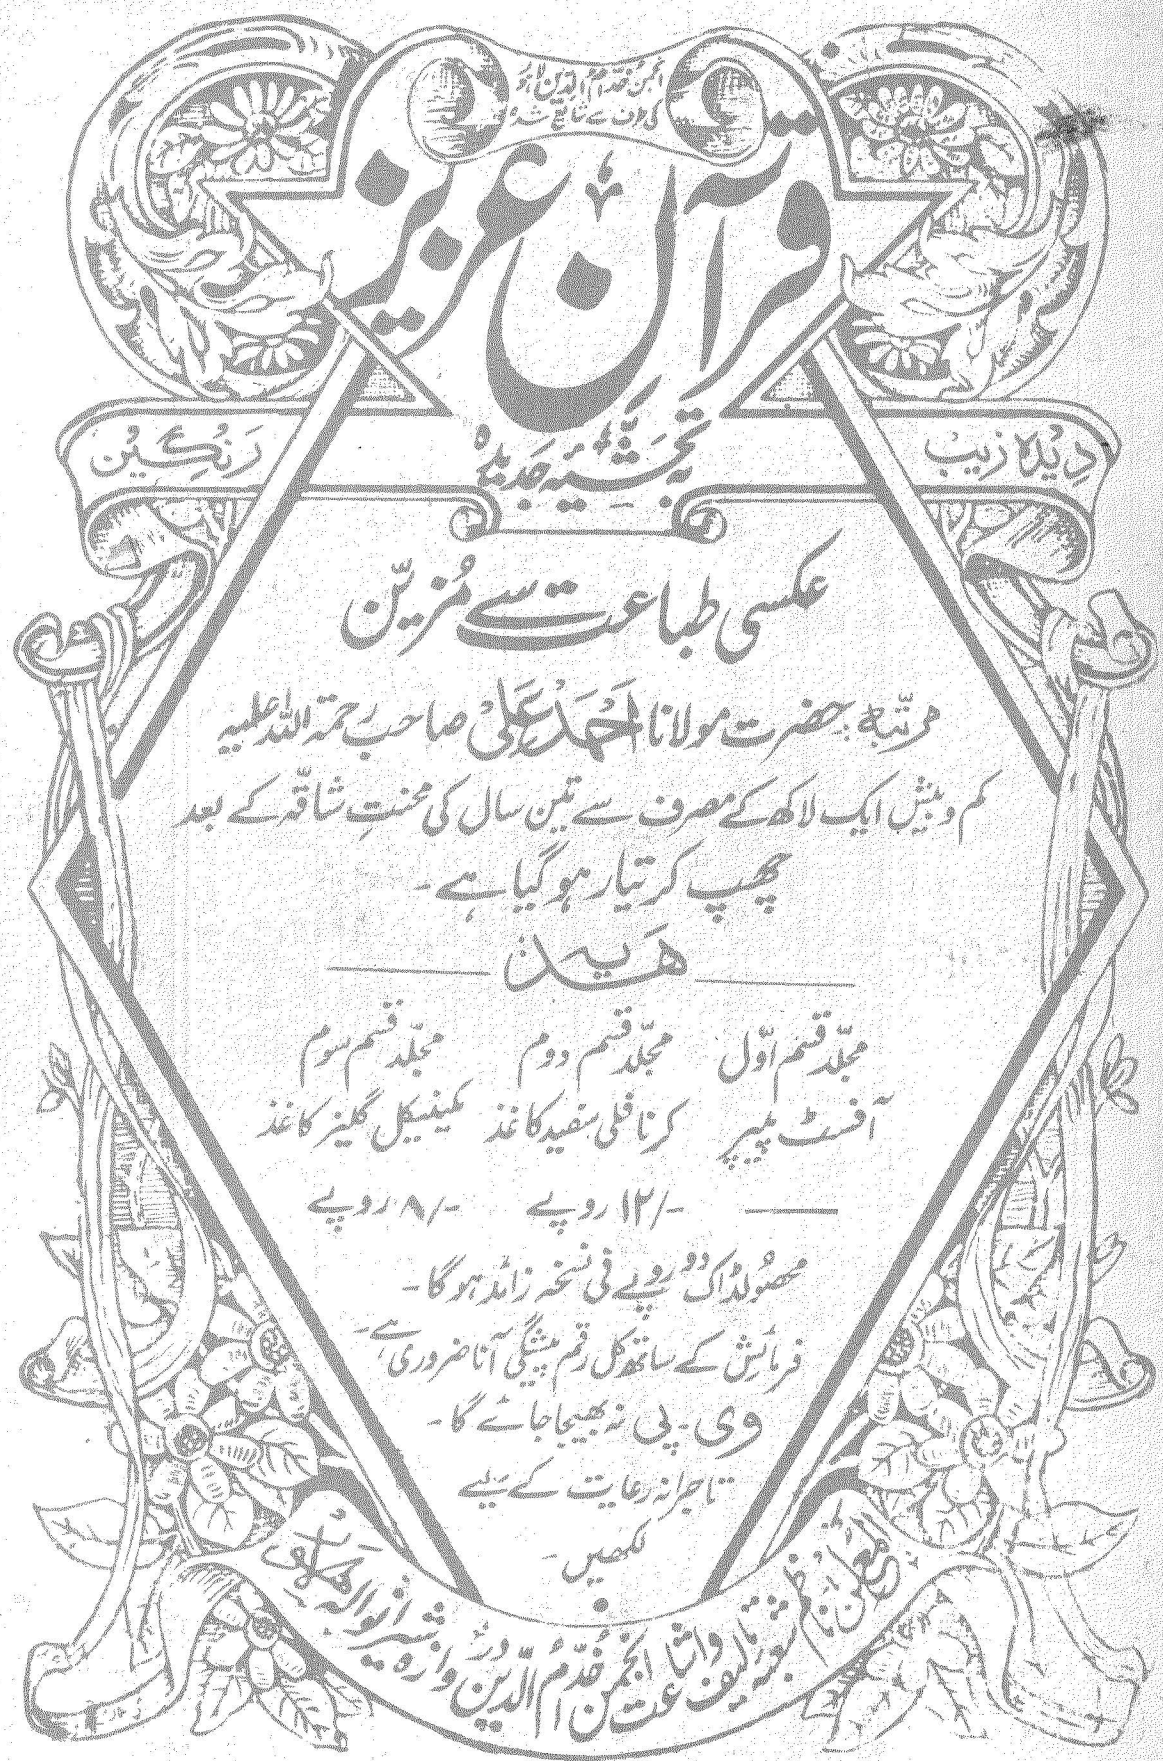 انجمن خدام الدین لاہور
کی طرف سے شائع شدہ
قرآن عزیز
دیدہ زیب
بہ تحشیۂ جدیدہ
رنگین
عکسی طباعت سے مزیّن
مرتّبہ: حضرت مولانا احمد علی صاحب رحمۃ اللہ علیہ
کم و بیش ایک لاکھ کے مصرف سے تین سال کی محنتِ شاقّہ کے بعد
چھپ کر تیار ہو گیا ہے۔
ھدیہ
مجلّد قسم اوّل مجلّد قسم دوم مجلّد قسم سوم
آفسٹ پیپر کرنافلی سفید کاغذ مکینیکل گلیز کاغذ
۱۲/- روپے ۸/- روپے
محصولڈاک دو روپے فی نسخہ زائد ہو گا۔
فرمائش کے ساتھ کل رقم پیشگی آنا ضروری ہے۔
وی۔ پی نہ بھیجا جائے گا۔
تاجرانہ رعایت کے لیے
لکھیں۔
المعلن ناظم شعبہ تالیف و اشاعت انجمن خدّام الدّین دروازہ شیرانوالہ لاہور